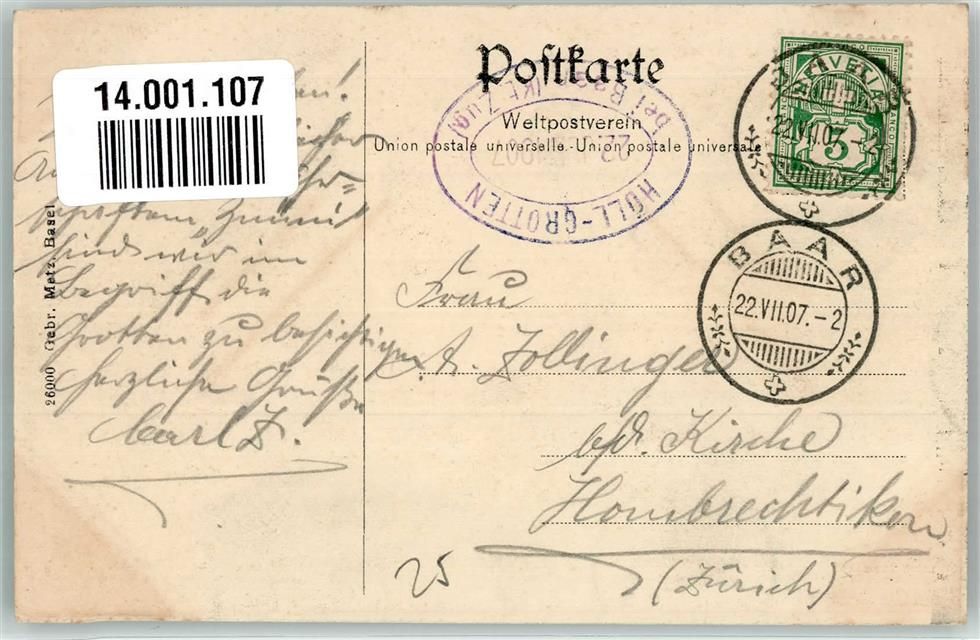 14.001.107
Postkarte
Weltpostverein
Union postale universelle.-Union postale universale
HÖLL-GROTTEN bei Baar (Kt. Zug)
22. 1907
HELVETIA
FRANCO
5
22.VII.07.-2
BAAR
22.VII.07.-2
sind wir im
Begriff die
Grotten zu besichtigen
herzliche Grüße
Carl Z.
26000 Gebr. Metz, Basel
Frau
A. Zollinger
b/d. Kirche
Hombrechtikon
(Zürich)
25